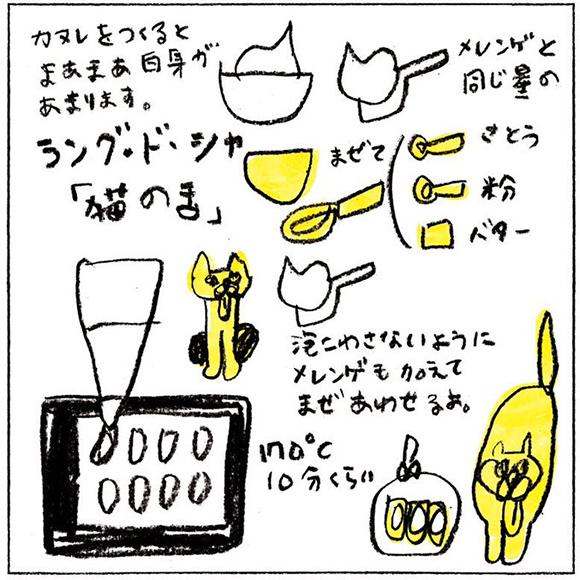 カヌレをつくると
まあまあ白身が
あまります。
メレンゲと
同じ量の
ラング・ド・シャ
「猫のま」
まぜて
さとう
粉
バター
泡こわさないように
メレンゲも加えて
まぜあわせるよ。
170℃
10分くらい